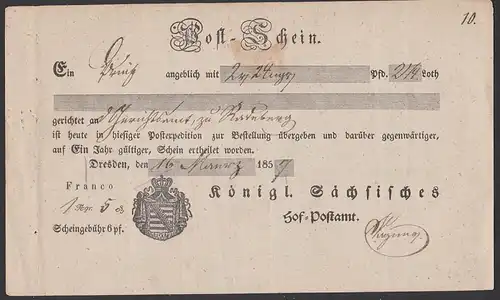 10.
Post-Schein.
Ein Brief angeblich mit 2 24 ngr Pfd. 2¼ Loth
gerichtet an Gerichtsamt, zu Radeberg
ist heute in hiesiger Postexpedition zur Bestellung übergeben und darüber gegenwärtiger,
auf Ein Jahr gültiger, Schein ertheilet worden.
Dresden, den 16 1857
Franco
1 Ngr. 5 pf.
Königl. Sächsisches
Hof-Postamt.
Scheingebühr 6 pf.